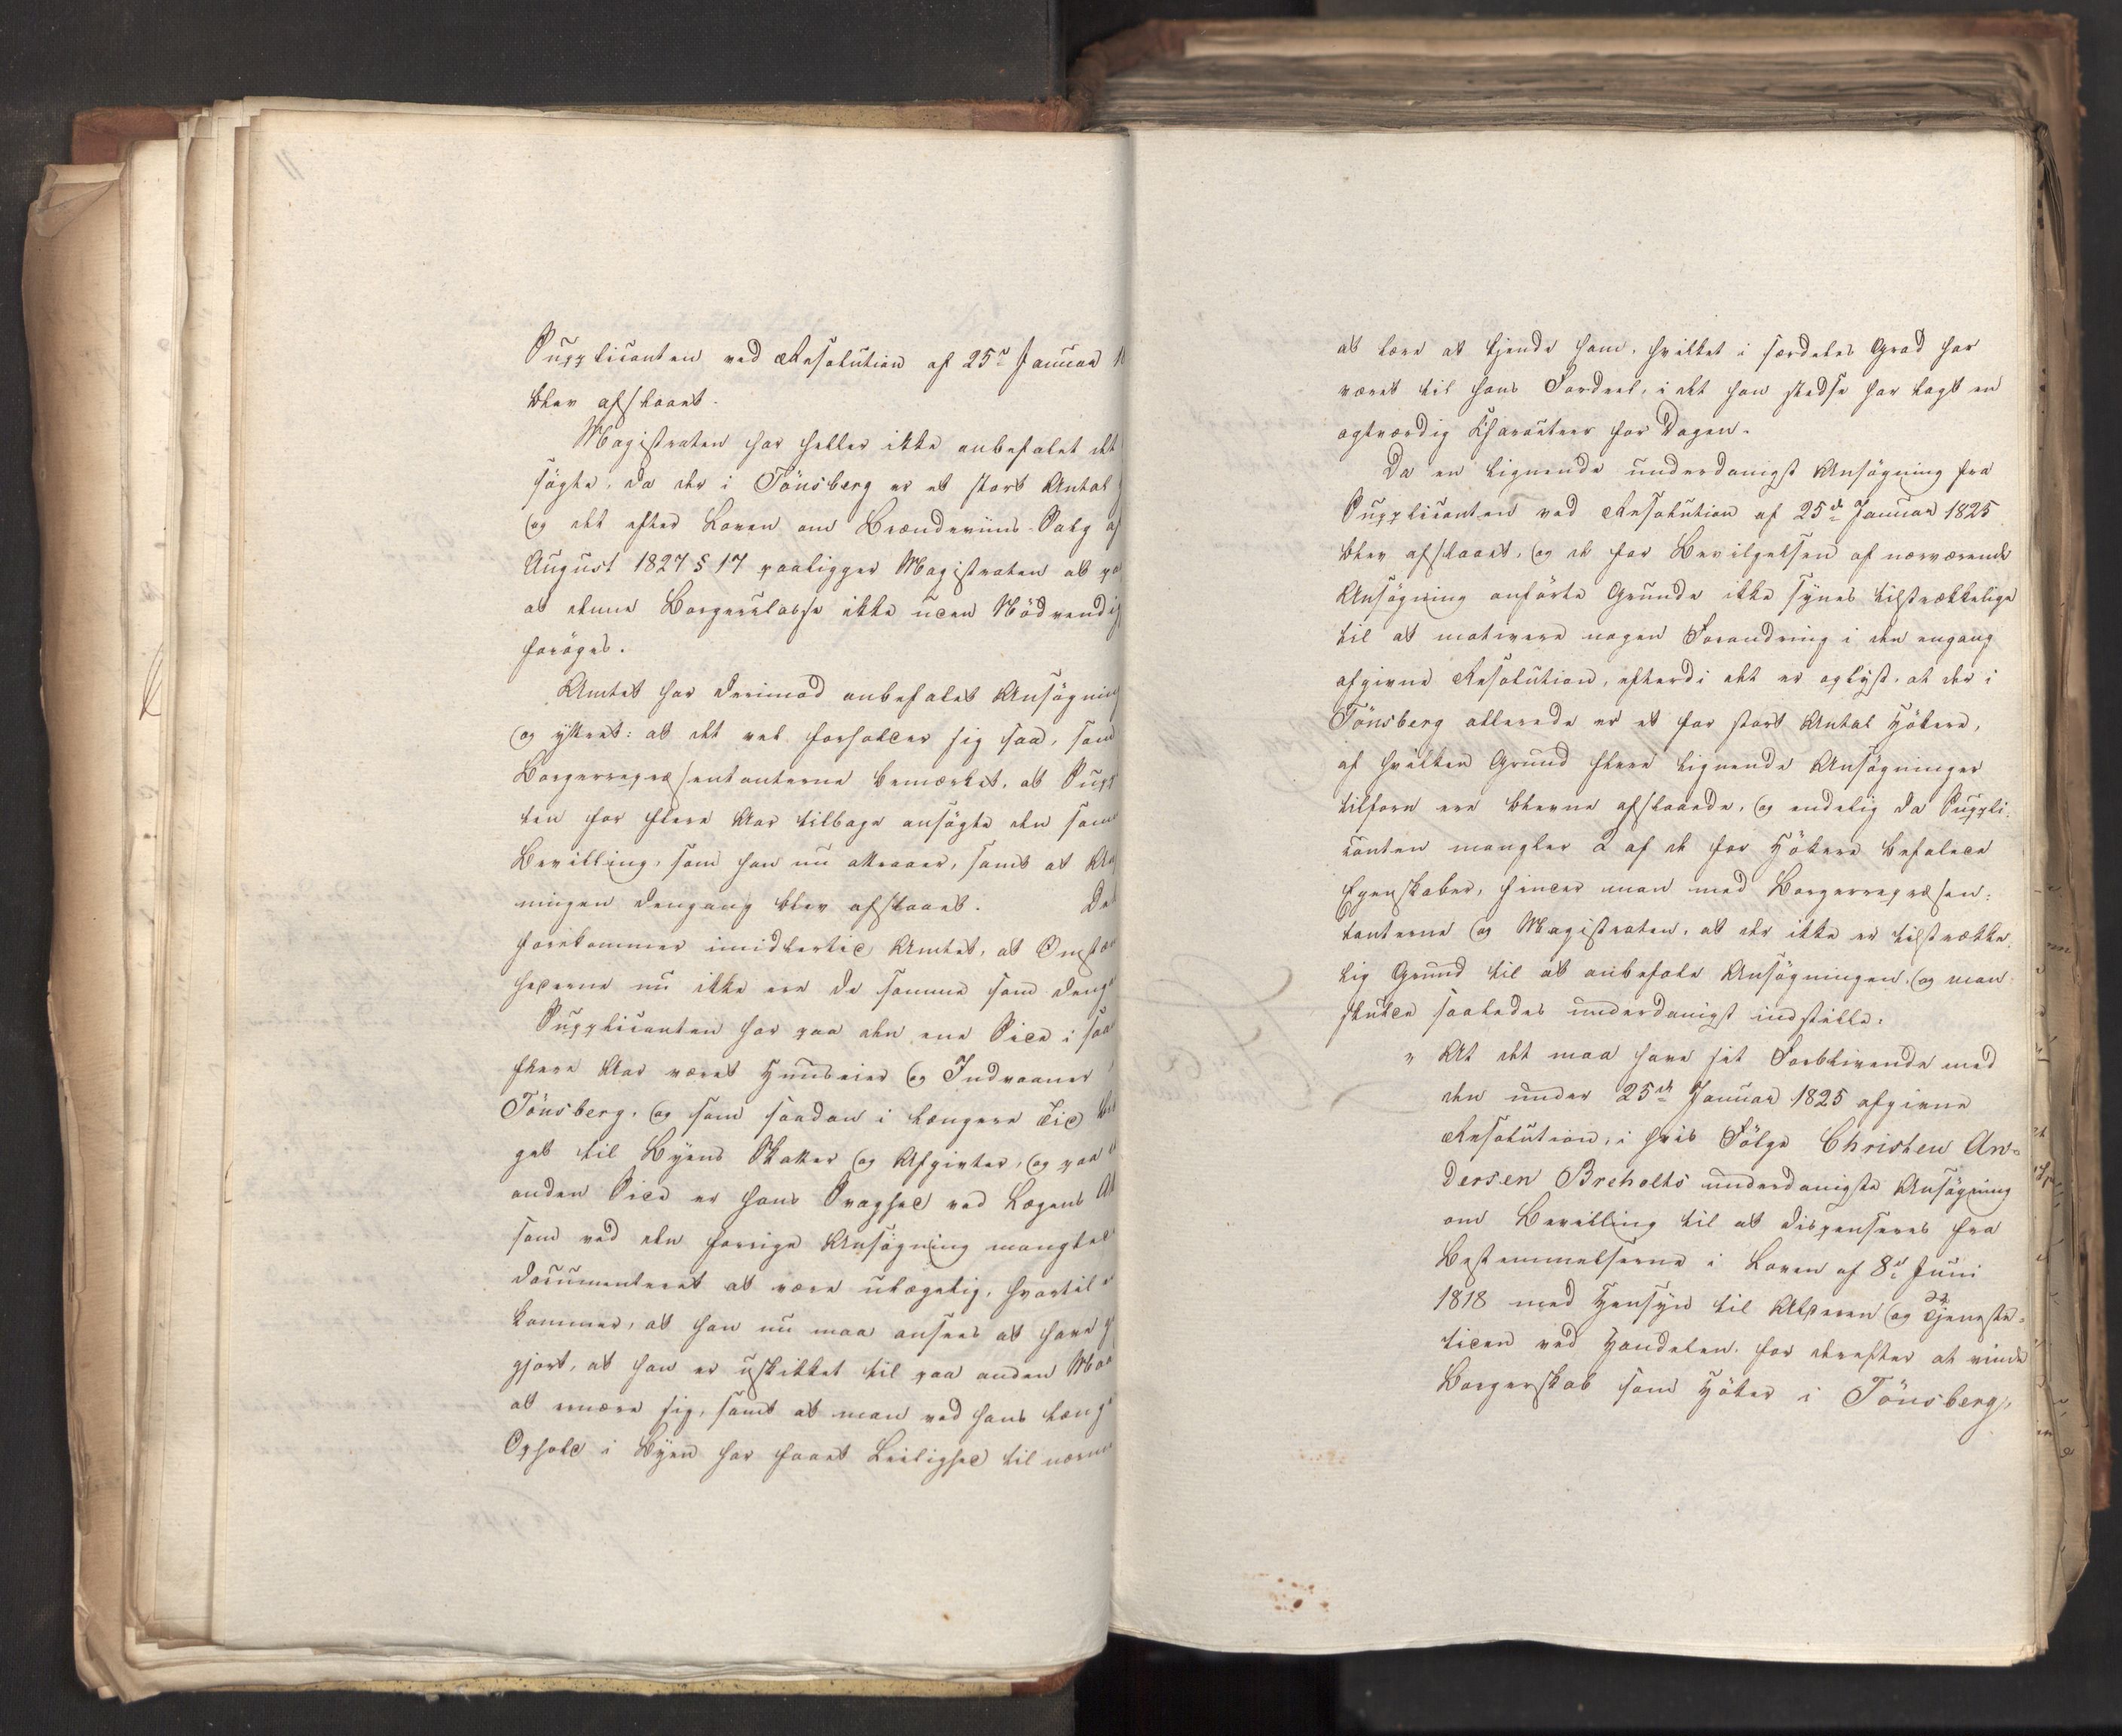 11
Supplicanten ved Resolution af 25de Januar
blev afslaaet.
Magistraten har heller ikke anbefalet det
søgte, da der i Tönsberg er et stort Antal
og det efter Loven om Brændeviins-Salg af
August 1827 § 17 paaligger Magistraten at
at denne Borgerclasse ikke uden Nödvendig
foröges.
Amtet har derimod anbefalet Ansögning
og yttret: at det vel forholder sig saa, som
Borgerrepræsentanterne bemærket, at Supp
ten for flere Aar tilbage ansögte den samme
Bevilling, som han nu attraaer, samt at
ningen dengang blev afslaaet. Det
forekommer imidlertid Amtet, at Omstæn
hederne nu ikke ere de samme som deng
Supplicanten har paa den ene Side i
flere Aar været Huuseier og Indvaaner
Tönsberg, og som saadan i længere Tid
get til Byens Skatter og Afgivter, og paa
anden Side er hans Svaghed ved Lægens
som ved den forrige Ansögning manglede
documenteret at være ulægelig, hvortil
kommer, at han nu maa ansees at have
gjort, at han er uskikket til paa anden Maa
at ernære sig, samt at man ved hans længe
Ophold i Byen har faaet Leilighed til nærme
at lære at kjende ham, hvilket i særdeles Grad har
været til hans Fordeel, i det han stedse har lagt en
agtværdig Charakteer for Dagen.
Da en lignende underdanigst Ansögning fra
Supplicanten ved Resolution af 25de Januar 1825
blev afslaaet, og de for Bevilgelsen af nærværende
Ansögning anförte Grunde ikke synes tilstrækkelige
til at motivere nogen Forandring i den engang
afgivne Resolution, efterdi det er oplyst, at der i
Tönsberg allerede er et for stort Antal Hökere,
af hvilken Grund flere lignende Ansögninger
tilforn ere blevne afslaaede, og endelig da Suppli-
canten mangler 2 af de for Hökere befalede
Egenskaber, finder man med Borgerrepræsen-
tanterne og Magistraten, at der ikke er tilstrække-
lig Grund til at anbefale Ansögningen, og man
skulde saaledes underdanigst indstille:
" At det maa have sit Forblivende med
den under 25de Januar 1825 afgivne
Resolution, i hvis Fölge Christen An-
dersen Breholts underdanigste Ansögning
om Bevilling til at dispenseres fra
Bestemmelserne i Loven af 8de Juni
1818 med Hensyn til Alderen og Tjeneste-
tiden ved Handelen, for derefter at vinde
Borgerskab som Höker i Tönsberg,